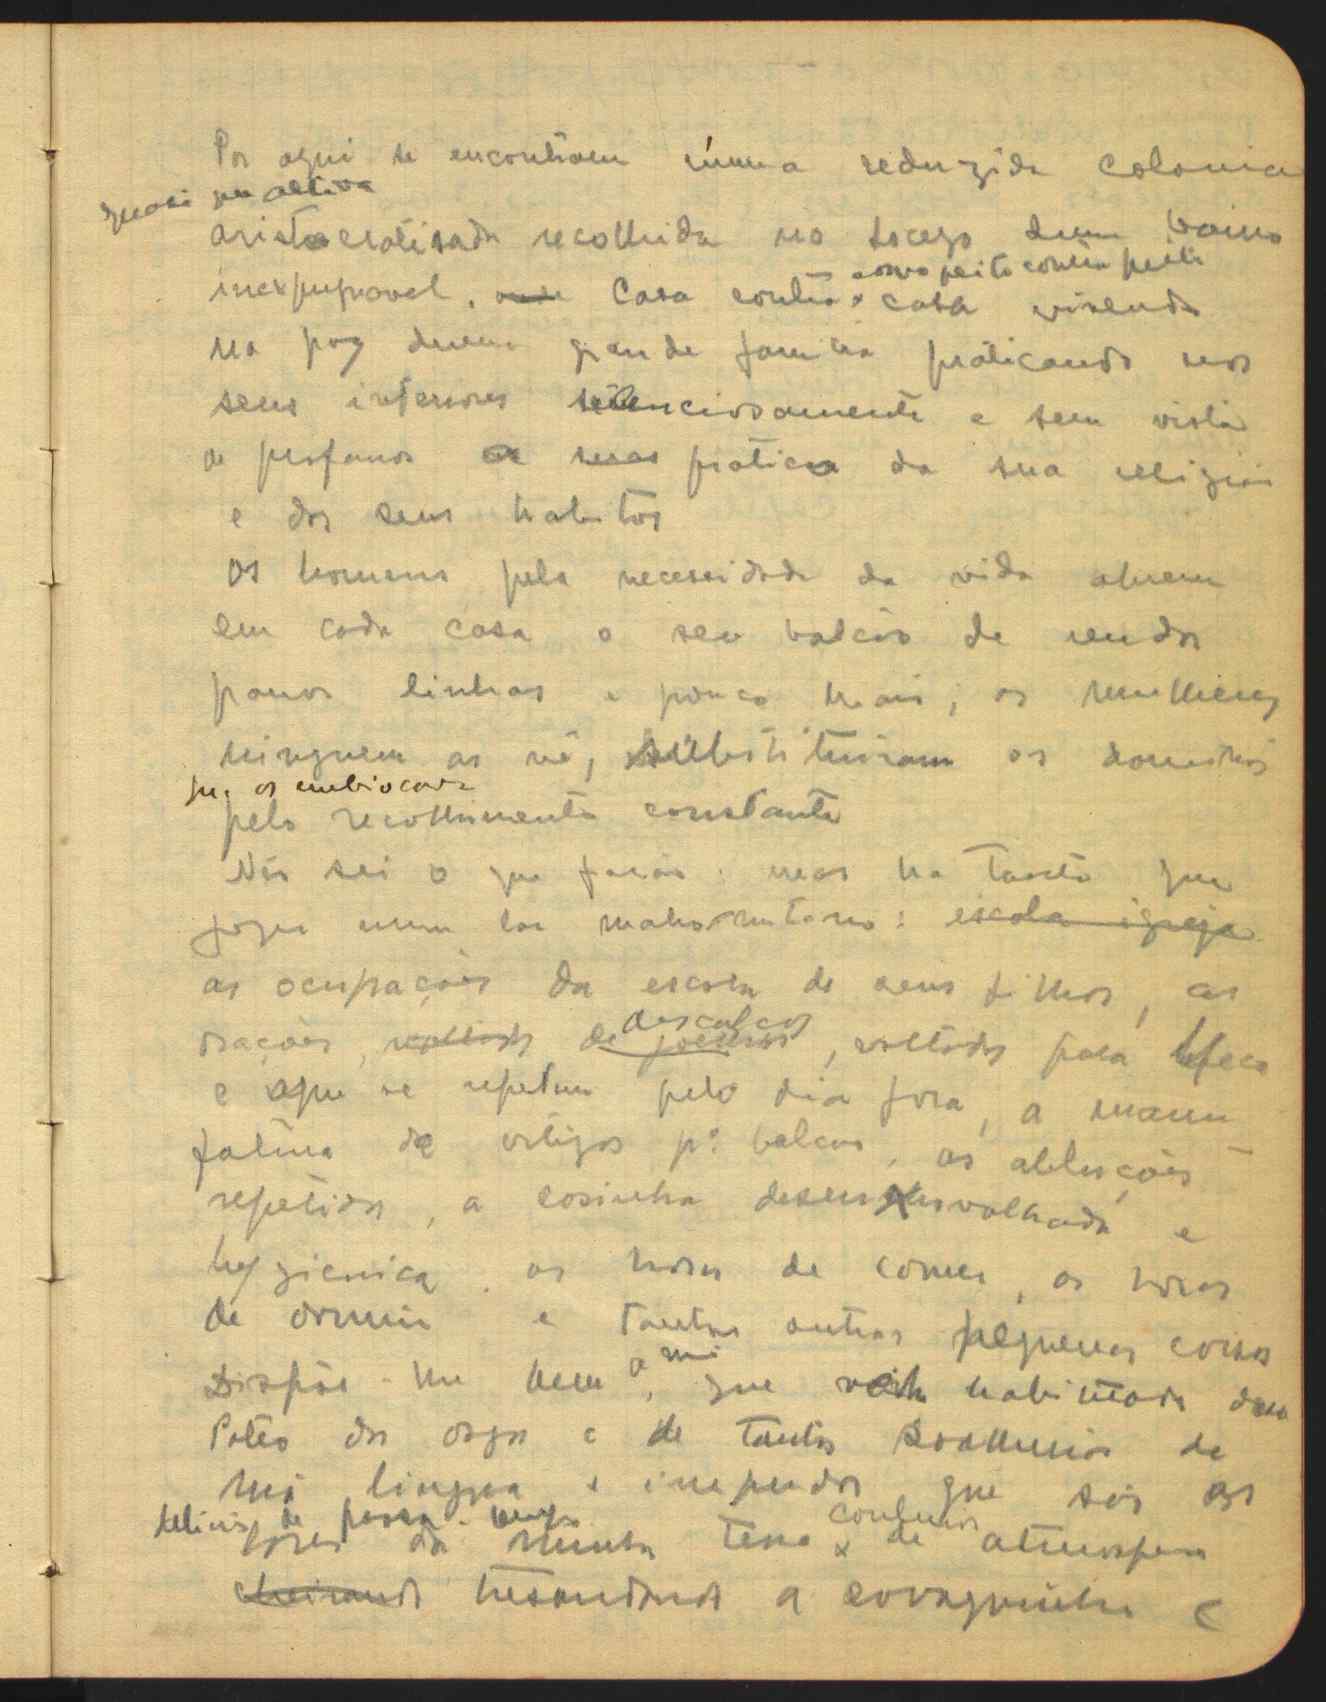 Por aqui se encontram numa reduzida colonia
quasi
aristocratisada recolhida no socego dum bairro
inexpugnavel, onde Casa contra casa vivendo
como peito contra peito
na paz duma grande familia práticando nos
seus interiores silenciosamente e sem vista
de profanos as suas pratica da sua religião
e dos seus habitos
Os homens pela necessidade da vida abrem
em cada casa o seu balcão de
panos linhas e pouco mais; as mulheres
ninguem as vê, substituiram os dominós
que os embiocava
pelo recolhimento constante
Não sei o que farão: mas ha tanto que
fazer num lar mahometano: escola igreja
as ocupações da escola de seus filhos, as
orações, voltados de joelhos, voltados para Meca
descalços
e que se repetem pelo dia fora, a
de artigos pª balcão, as abluções
repetidas, a cosinha e
hygienica, as horas de comer, as horas
de dormir e tantas outras pequenas coisas
Dispõe-me bem a mi, que habituado
Pateo das osgas e de tantos de
má lingua e que são os
de passa-tempo
da minha terra de atmosfera
cheirando tresandando a e